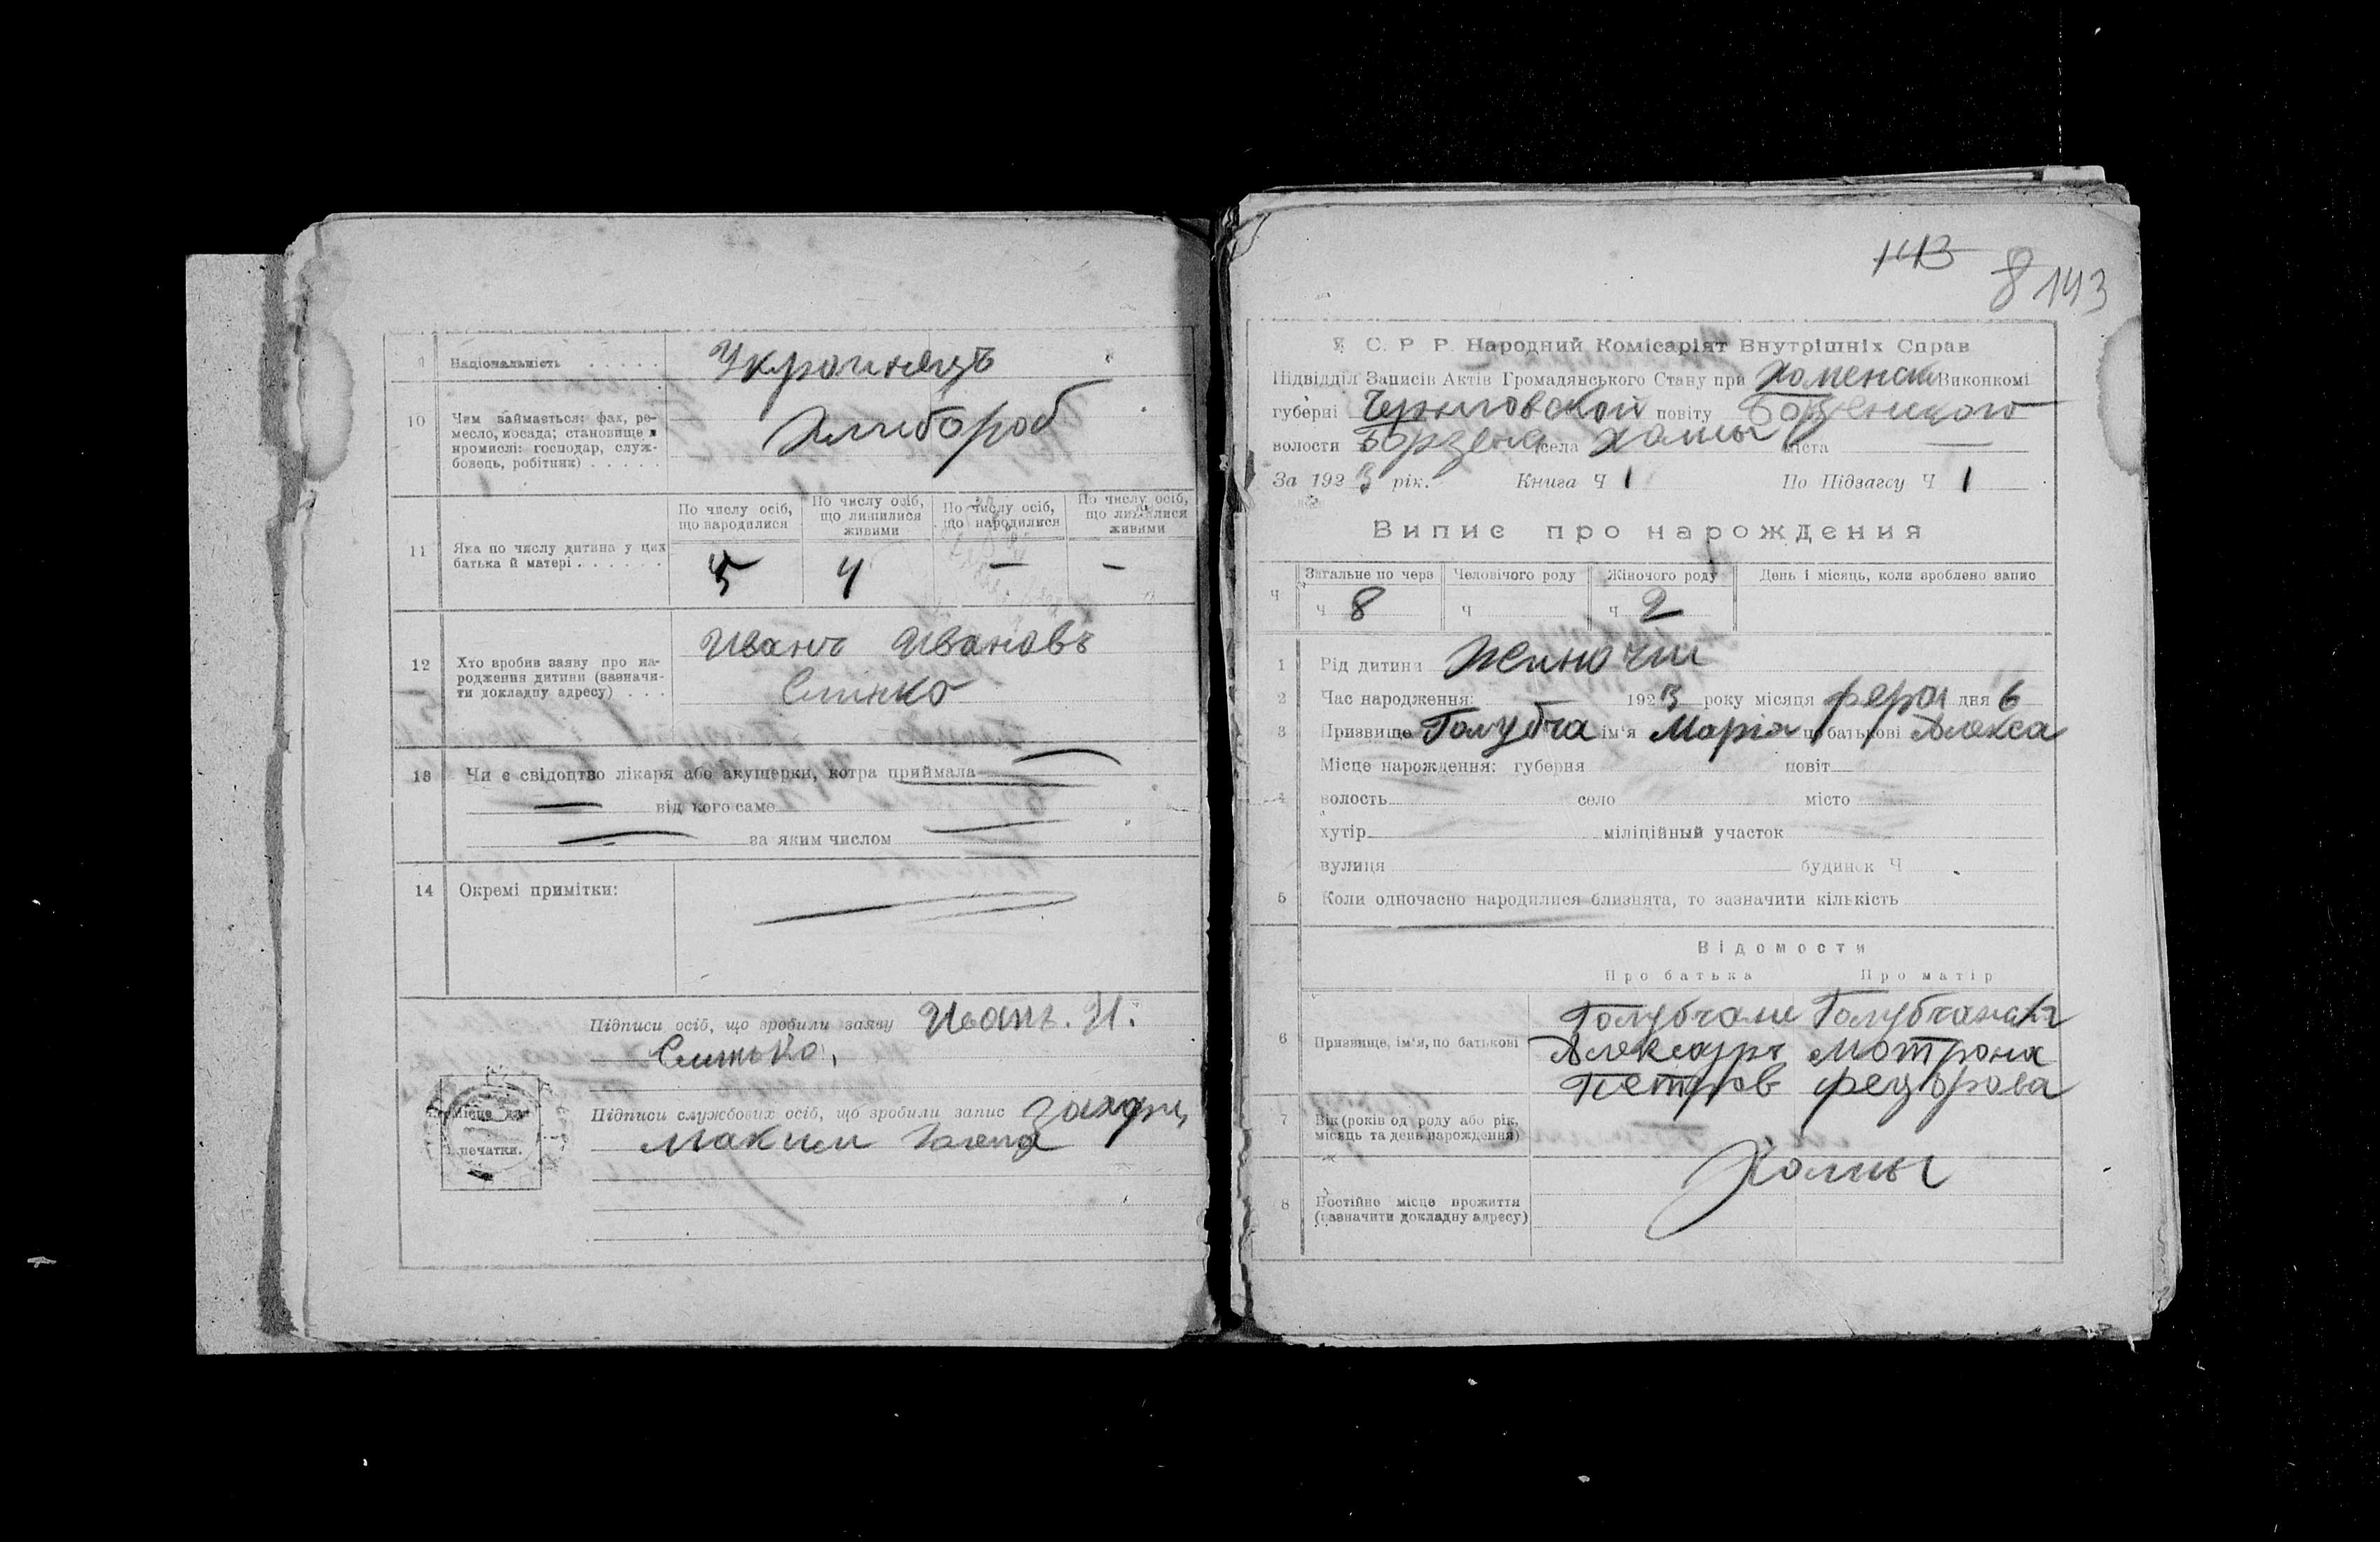 9 Національність . . . . . Украинецъ
10 Чим займається: фах, ре-
месло, посада; становище в
промислі: господар, служ-
бовець, робітник) . . . . .
Хлибороб
11 Яка по числу дитина у цих
батька й матері . . . . . .
По числу осіб,
що народилися
По числу осіб,
що лишилися
живими
По числу осіб,
що народилися
По числу осіб,
що лишилися
живими
5 4 — —
12 Хто вробив заяву про на-
родження дитини (зазначи-
ти докладну адресу) . . .
Иванъ Ивановъ
Слинко
13 Чи є свідоцтво лікаря або акушерки, котра приймала —
— від кого саме
— за яким числом —
14 Окремі примітки:
Підписи осіб, що зробили заяву Иванъ. И.
Слинько,
Місце для
печатки.
Підписи службових осіб, що зробили запис
Максим
143
8 143
У. С. Р. Р. Народний Комісаріят Внутрішніх Справ
Підвідділ Записів Актів Громадянського Стану при Виконкомі
губерні Черниговской повіту Борзенского
волости Борзена села Холмы міста —
За 1923 рік. Книга Ч 1 По Підзагсу Ч 1
Випис про нарождения
Ч Загальне по черз Человічого роду Жіночого роду День і місяць, коли зроблено запис
ч 8 ч ч 2
1 Рід дитини Жиночи
2 Час народження: 1923 року місяця дня 6
3 Призвище Голубча ім'я Марія по батькові Алекса
4 Місце нарождення: губерня повіт
волость село місто
хутір міліційный участок
вулиця будинок Ч
5 Коли одночасно народилися близнята, то зазначити кількість
Відомости
Про батька Про матір
6 Призвище, ім'я, по батькові
Александръ Мотрона
Петров Федорова
7 Вік (років од роду або рік,
місяць та день нарождення)
8 Постійне місце прожиття
(зазначити докладну адресу)
Холмы